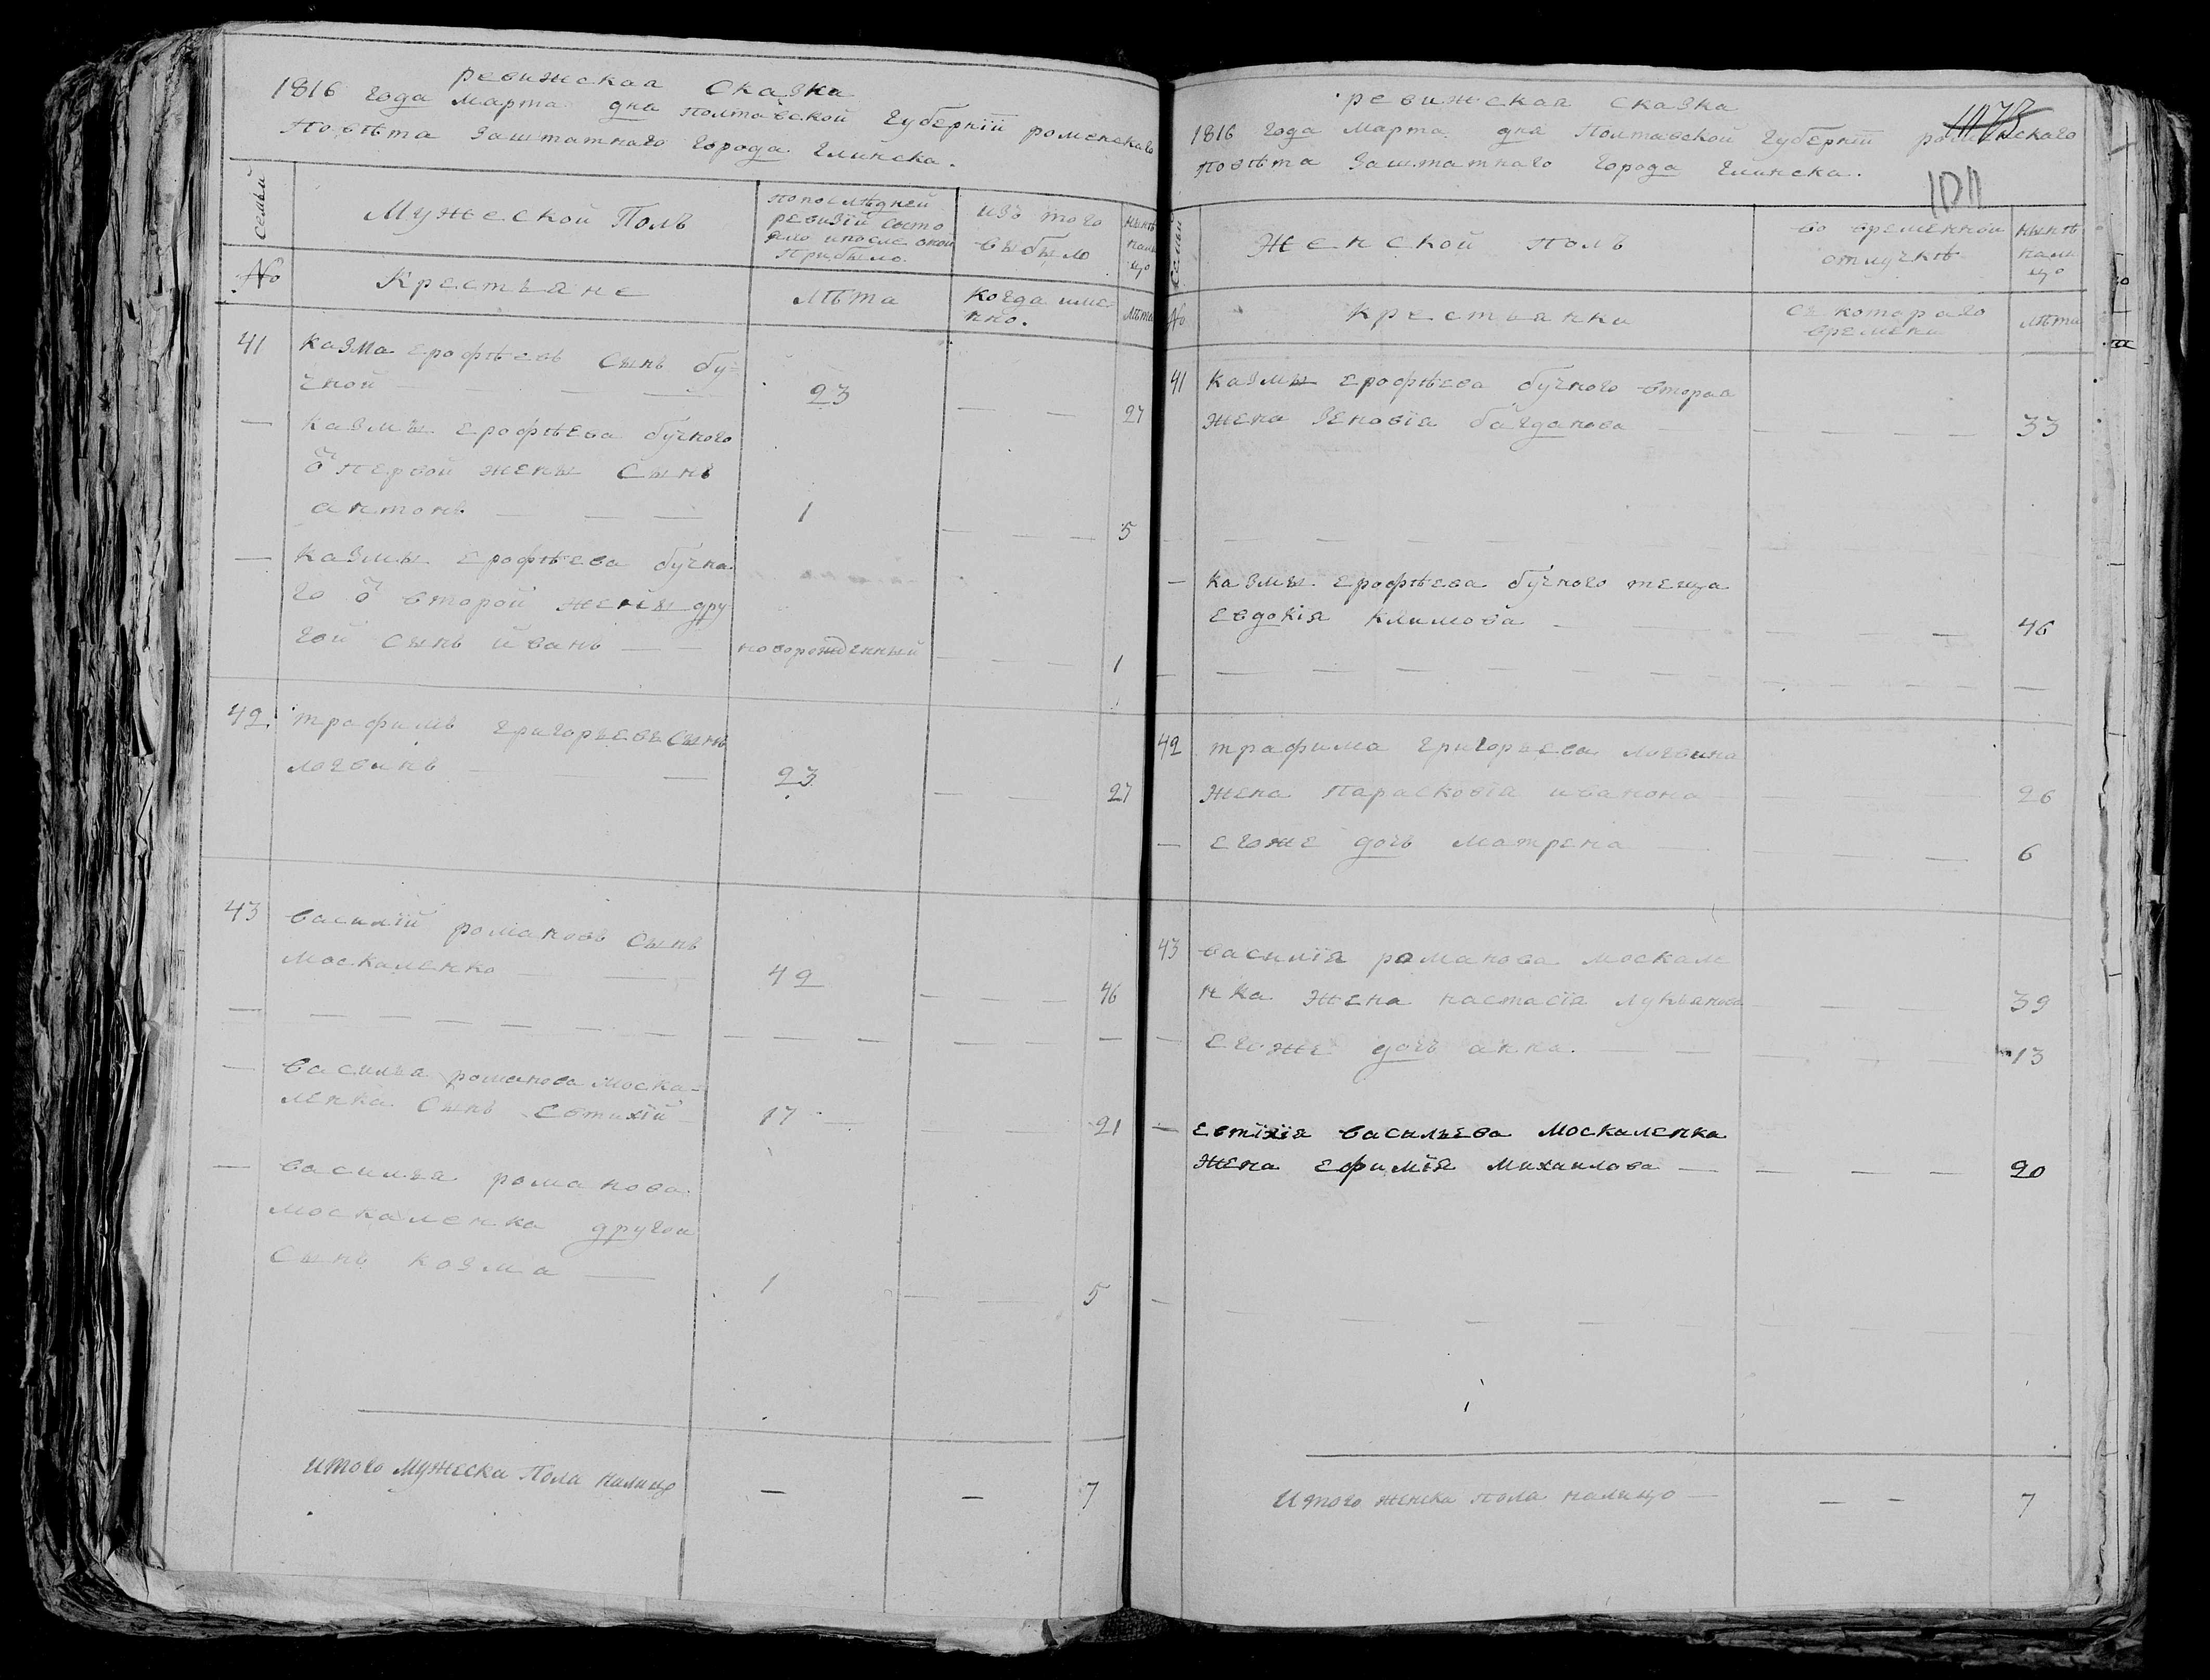 ревижская Сказка
1816 года марта дня полтавской Губерніи роменскаго
повѣта Заштатнаго города глинска.
семьи
Мужеской Полъ
попослѣдней
ревизіи состо
яло ипосле оной
Прибыло.
изъ того
выбыло
нынѣ
нали
цо
№
Крестьяне
лѣта
когда име-
нно.
лѣта
41
казма ерофѣевъ сынъ бу-
чной
23
27
казмы ерофѣева бучного
ѿ первой жены сынъ
антонъ
1
5
казмы ерофѣева бучно
го ѿ второй жены дру
гой сынъ иванъ
новорожденный
1
42
трафимъ григорьевъ сынъ
логвинъ
23
27
43
василій романовъ сынъ
москаленко
42
46
василья романова моска-
ленка сынъ евтихій
17
21
василья романова
москаленка другой
сынъ козма
1
5
Итого мужеска Пола налицо
7
ревижская сказка
1816 года марта дня Полтавской Губерніи роменскаго
повѣта Заштатнаго города глинска.
1011
семьи
Женской полъ
во временной
отлучкѣ
нынѣ
нали
цо
№
Крестьянки
съ котораго
времени
лѣта
41
казмы ерофѣева бучного вторая
жена зеновія багданова
33
казмы ерофѣева бучного теща
евдокія климова
46
42
трафима григорьева логвина
жена Парасковія иванона
26
егоже дочь матрена
6
43
василія романова москале
нка жена настасія лукьянова
39
егоже дочь анна.
13
евтіхія васильева москаленка
жена ефимія михаилова
20
Итого женска пола налицо
7